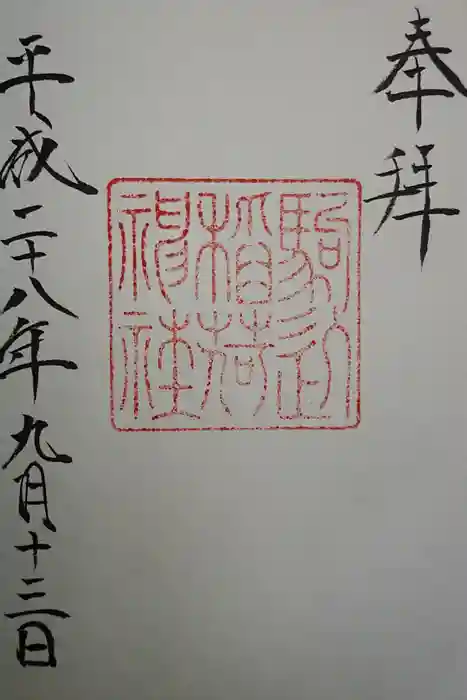 奉拝
駒込
稲荷
神社
平成二十八年九月十三日